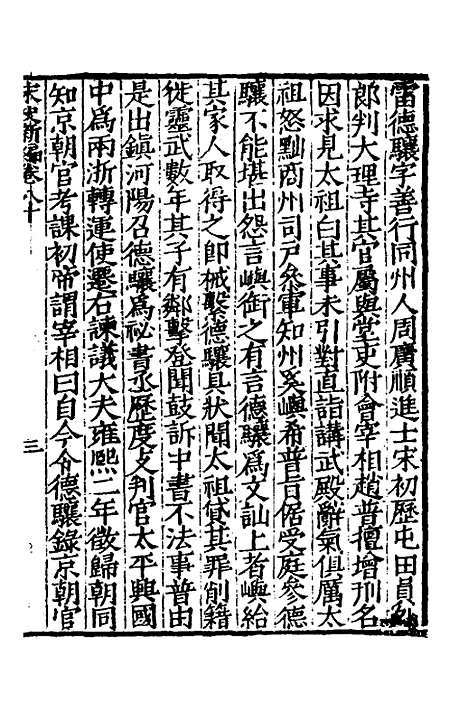 雷德驤字善行同州人周廣順進士宋初歷屯田員外
郎判大理寺其官屬與堂吏附會宰相趙普擅增刑名
因求見太祖白其事未引對直詣講武殿辭氣俱厲太
祖怒黜商州司戶叅軍知州奚嶼希普旨倨受庭參德
驤不能堪出怨言嶼銜之有言德驤爲文訕上者嶼給
其家人取得之即械繫德驤具狀聞太祖貸其罪削籍
徙靈武數年其子有鄰擊登聞鼓訴中書不法事普由
是出鎮河陽召德驤爲祕書丞歷度支判官太平興國
中爲兩浙轉運使遷右諫議大夫雍熙二年徵歸朝同
知京朝官考課初帝謂宰相曰自今令德驤錄京朝官
宋史新編卷八十
三